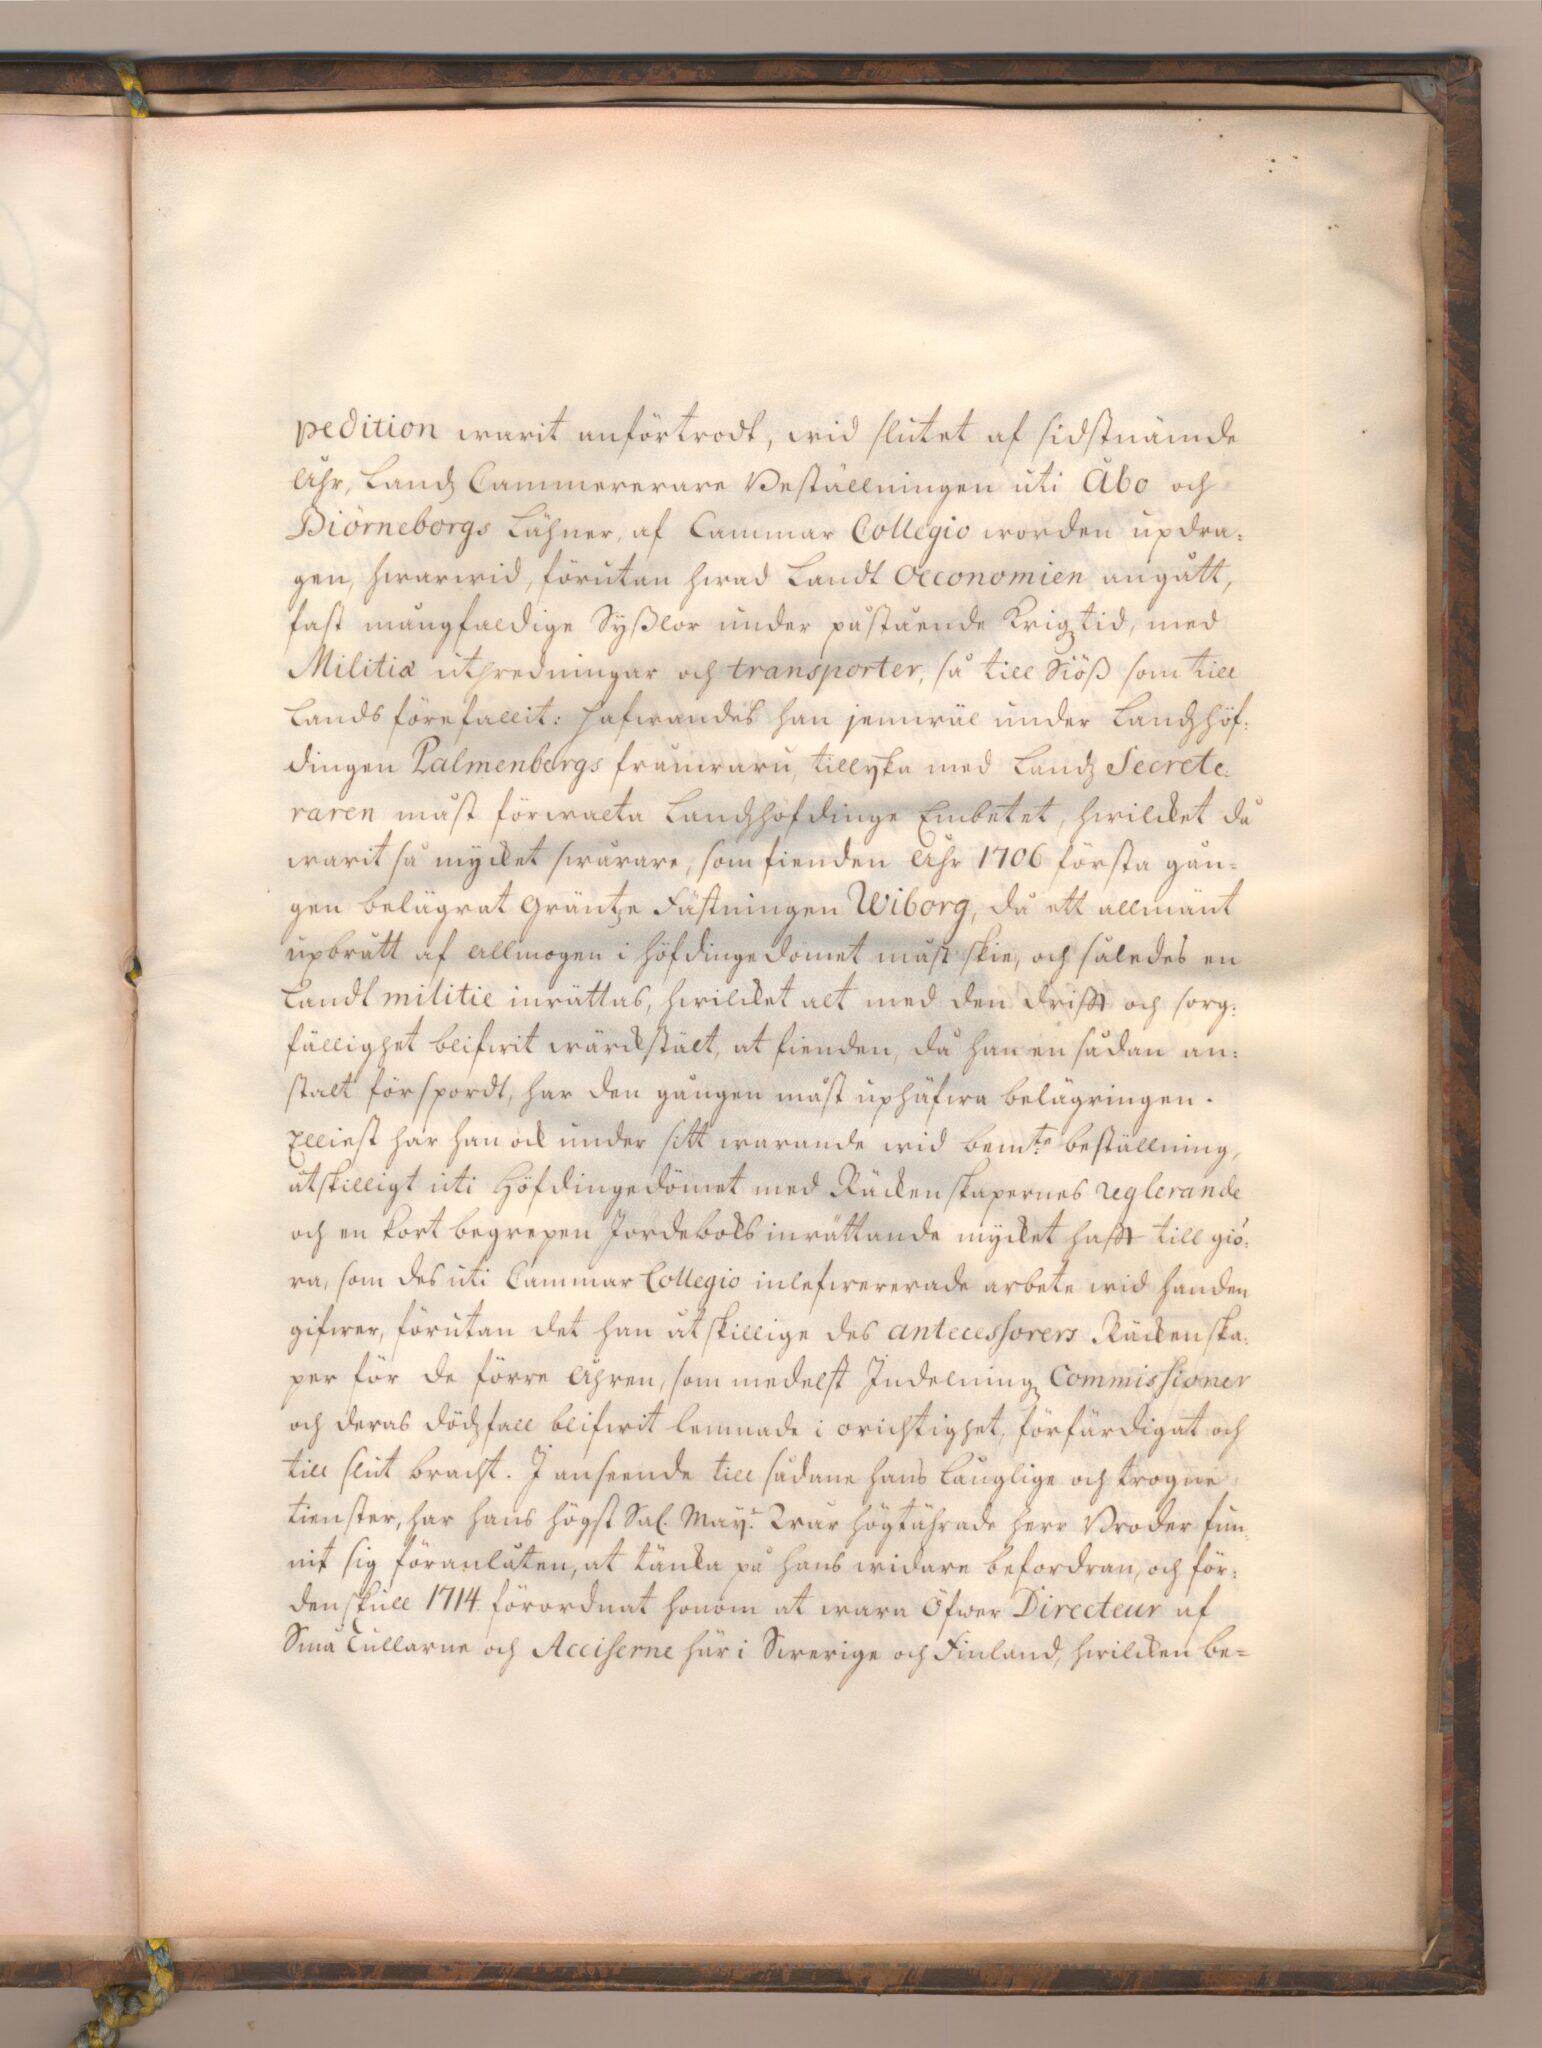 pedition warit anförtrodt, wid slutet af sidstnämde
Åhr, Landz Cammererare Beställningen uti Åbo och
Biörneborgs Lähner, af Cammar Collegio worden updra-
gen, hwarwid, förutan hwad Landt Oeconomien angått,
fast mångfaldige Syßlor under påstående Krigztid, med
Militiæ uthredningar och transporter, så till Siöß som till
Lands förefallit: hafwandes han jemwäl under Landzhöf-
dingen Palmenbergs frånwaru, tillyka med Landz Secrete-
raren måst förwalta Landzhöfdinge Embetet, hwilcket då
warit så mycket swårare, som fienden Åhr 1706 första gån-
gen belägrat Gräntze Fästningen Wiborg, då ett allmänt
upbrått af Allmogen i Höfdingedömet måst skie, och således en
Landt militie inrättas, hwilcket alt med den drifft och sorg-
fällighet blifwit wärckstält, at fienden, då han en sådan an-
stalt förspordt, har den gången måst uphäfwa belägringen.
Elliest har han ock under sitt warande wid bemte beställning,
åtskilligt uti Höfdingedömet med Räckenskapernes reglerande
och en kort begrepen Jordeboks inrättande mycket hafft till giö-
ra, som des uti Cammar Collegio inlefwererade arbete wid handen
gifwer, förutan det han åtskillige des antecessorers Räckenska-
per för de förre Åhren, som medelst Indelningz Commissioner
och deras dödzfall blifwit lemnade i orichtighet, förfärdigat och
till slut bracht. I anseende till sådane hans lauglige och trogne
tienster, har hans högst Sal. May:t Wår högtährade herr Broder fun-
nit sig föranlåten, at täncka på hans widare befordran, och för-
denskull 1714 förordnat honom at wara Öfwer Directeur af
Små Tullarne och Acciserne här i Swerige och Finland, hwilcken be-